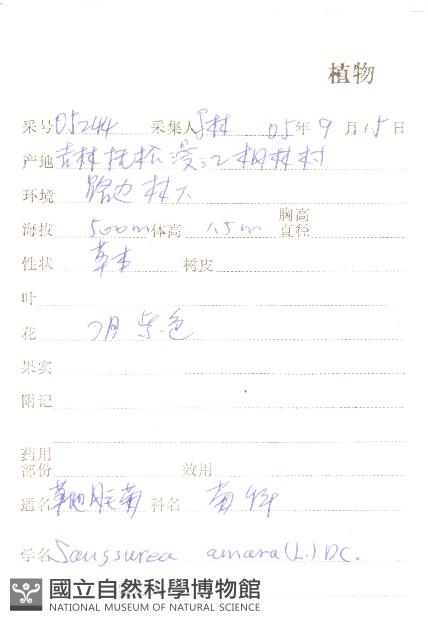 植物
采号 05244 采集人 林 05年 9月 15日
产地 吉林抚松漫江 林村
环境 路边林下
海拔 500m 体高 1.5m 胸高直径
性状 草本 树皮
叶
花 月 紫色
果实
附记
药用部份 效用
通名 菊 科名 菊科
学名 Saussurea amara (L.) DC.
國立自然科學博物館
NATIONAL MUSEUM OF NATURAL SCIENCE